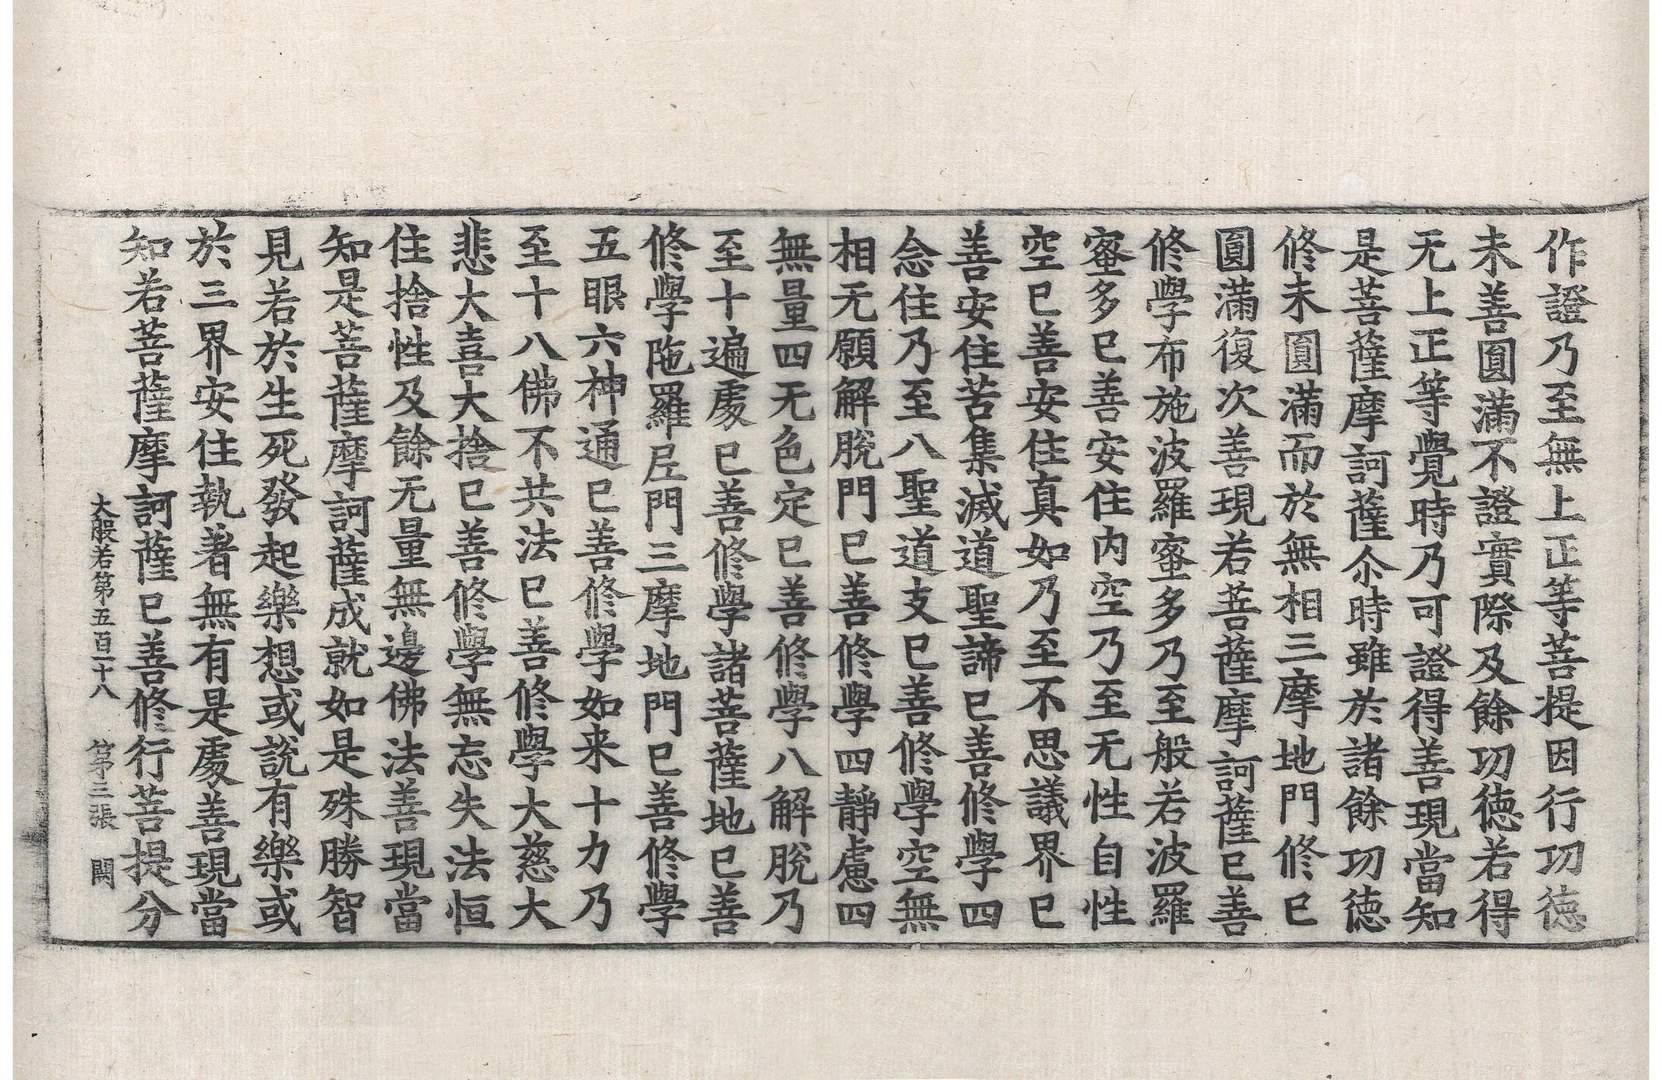 作證乃至無上正等菩提因行功德
未善圓滿不證實際及餘功德若得
无上正等覺時乃可證得善現當知
是菩薩摩訶薩尒時雖於諸餘功德
修未圓滿而於無相三摩地門修已
圓滿復次善現若菩薩摩訶薩已善
修學布施波羅蜜多乃至般若波羅
蜜多已善安住內空乃至无性自性
空已善安住真如乃至不思議界已
善安住苦集滅道聖諦已善修學四
念住乃至八聖道支已善修學空無
相无願解脫門已善修學四靜慮四
無量四无色定已善修學八解脫乃
至十遍處已善修學諸菩薩地已善
修學陁羅尼門三摩地門已善修學
五眼六神通已善修學如来十力乃
至十八佛不共法已善修學大慈大
悲大喜大捨已善修學無忘失法恒
住捨性及餘无量無邊佛法善現當
知是菩薩摩訶薩成就如是殊勝智
見若於生死發起樂想或說有樂或
於三界安住執著無有是處善現當
知若菩薩摩訶薩已善修行菩提分
大般若第五百十八 第三張 闕